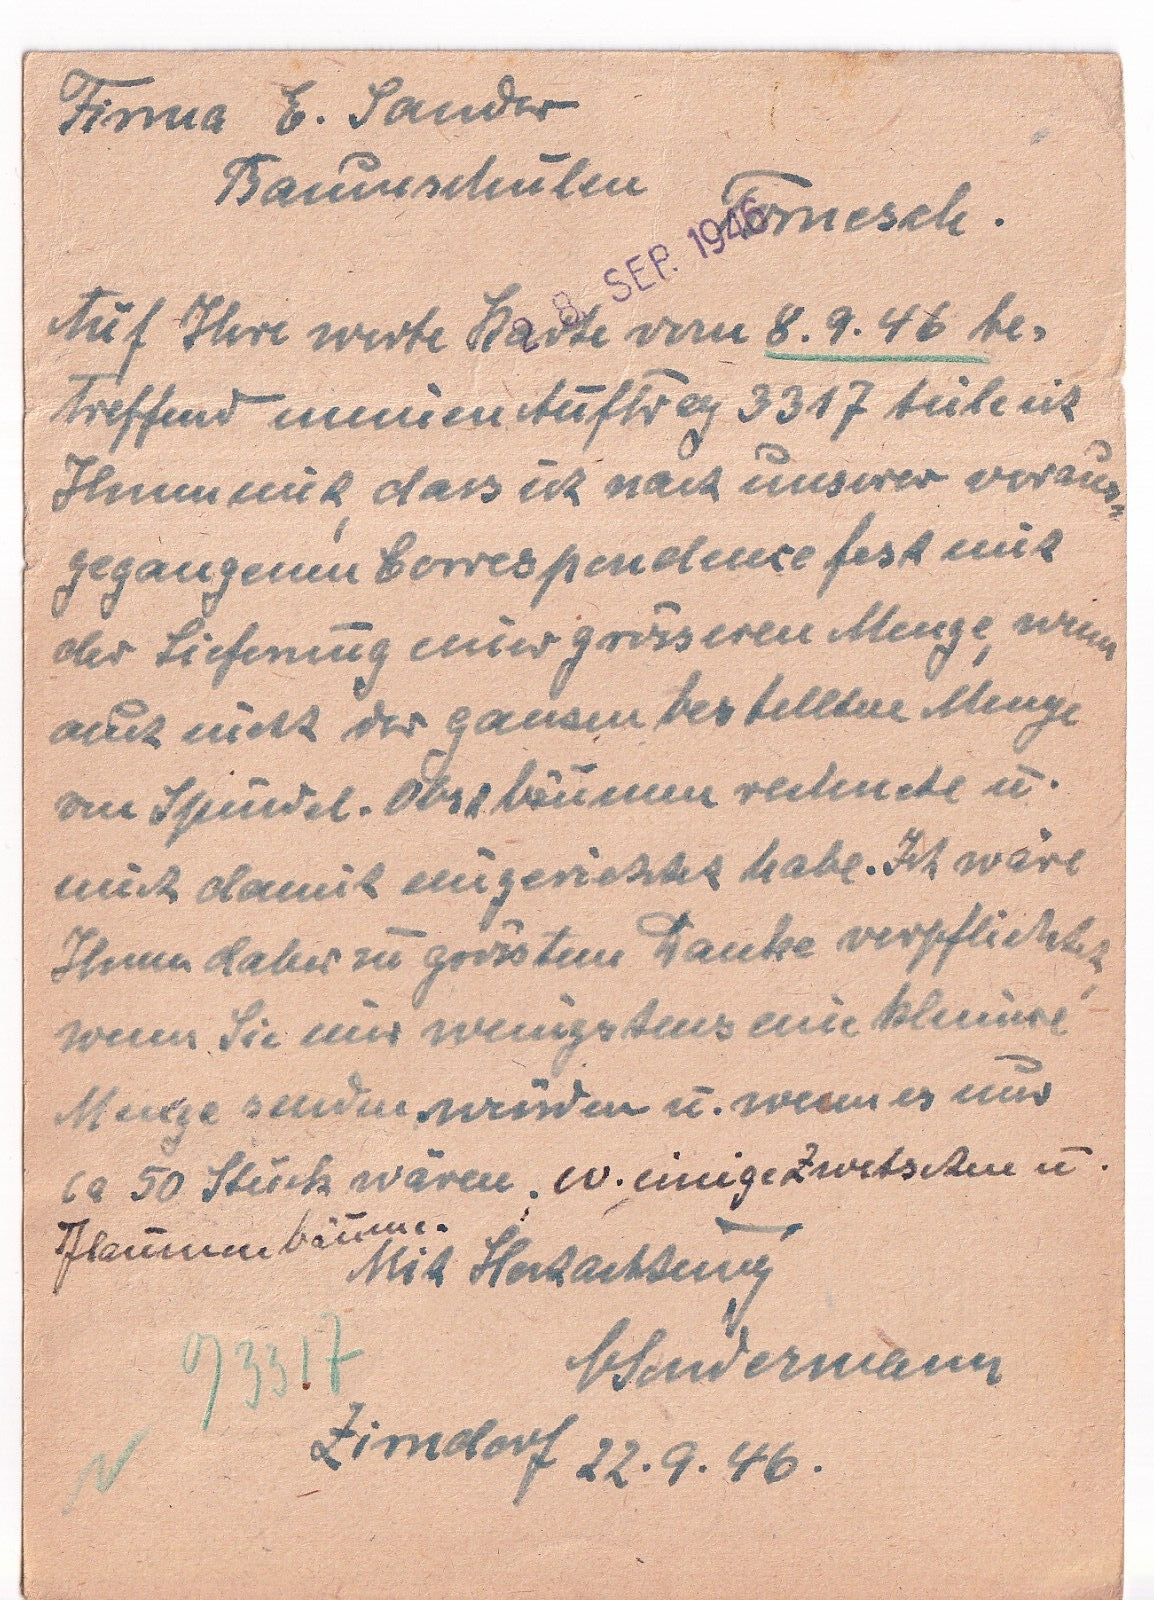 Firma E. Sander
Baumschulen
Tornesch.
28. SEP. 1946
Auf Ihre werte Karte vom 8.9.46 be-
treffend meinen Auftrag 3317 teile ich
Ihnen mit, dass ich nach unserer voraus-
gegangenen Correspondence fest mit
der Lieferung einer grösseren Menge, wenn
auch nicht der ganzen bestellten Menge
von Spindel-Obstbäumen rechnete u.
mich damit eingerichtet habe. Ich wäre
Ihnen daher zu grösstem Danke verpflichtet,
wenn Sie mir wenigstens eine kleinere
Menge senden würden u. wenn es nur
ca 50 Stück wären. einige Zwetschen u.
Pflaumenbäume.
Mit Hochachtung
Sudermann
3317
Zirndorf 22.9.46.